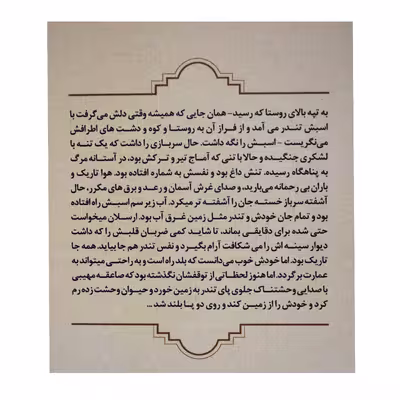 به تپه بالای روستا که رسید- همان جایی که همیشه وقتی دلش می‌گرفت با
اسبش تندر می آمد و از فراز آن به روستا و کوه و دشت های اطرافش
می‌نگریست - اسبش را نگه داشت. حال سربازی را داشت که یک تنه با
لشکری جنگیده و حالا با تنی که آماج تیر و ترکش بود، در آستانه مرگ
به پناهگاه رسیده. تنش داغ بود و نفسش به شماره افتاده بود. هوا تاریک و
باران بی رحمانه می‌بارید، و صدای غرش آسمان و رعد و برق های مکرر، حال
آشفته سرباز خسته جان را آشفته تر میکرد. آب زیر سم اسبش راه افتاده
بود و تمام جان خودش و تندر مثل زمین غرق آب بود. ارسلان میخواست
حتی شده برای دقایقی بماند، تا شاید کمی ضربان قلبش را که داشت
دیوار سینه اش را می شکافت آرام بگیرد و نفس تندر هم جا بیاید. همه جا
تاریک بود. اما خودش خوب می‌دانست که بلد راه است و به راحتی میتواند به
عمارت برگردد. اما هنوز لحظاتی از توقفشان نگذشته بود که صاعقه مهیبی
با صدایی وحشتناک جلوی پای تندر به زمین خورد و حیوان وحشت زده رم
کرد و خودش را از زمین کند و روی دو پا بلند شد ...